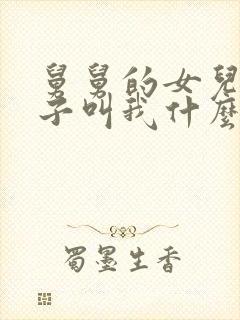 舅舅的女兒
子叫我什麼
蜀墨生香